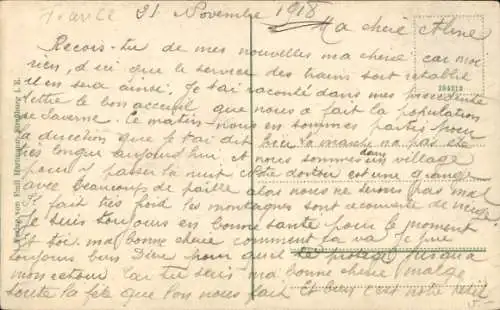 France 21 Novembre 1918
Ma chère Aline
Recois-tu de mes nouvelles ma chérie car moi
rien, d'ici que le service des trains soit rétablie
il en sera ainsi. Je t'ai raconté dans mes précédente
lettre le bon accueil que nous a fait la population
de Saverne. Ce matin nous en sommes partis pour
la direction que je t'ai dit hier la marche na pas été
très longue aujourd'hui et nous sommes dans un village
pour y passer la nuit notre dortoir est une grange
avec beaucoups de paille alors nous ne serons pas mal
Il fait très froid les montagnes sont recouverte de neige.
Je suis toujours en bonne santé pour le moment
et toi ma bonne chérie comment ca va Je prie
toujours bien Dieu pour qu'il te protège jusqu'a
mon retour. Car tu sais ma bonne chérie malgé
toute la fête que l'on nous fait Et bien c'est notre petit
394313
Verlag von Emil Hartmann, Straßburg i. E.